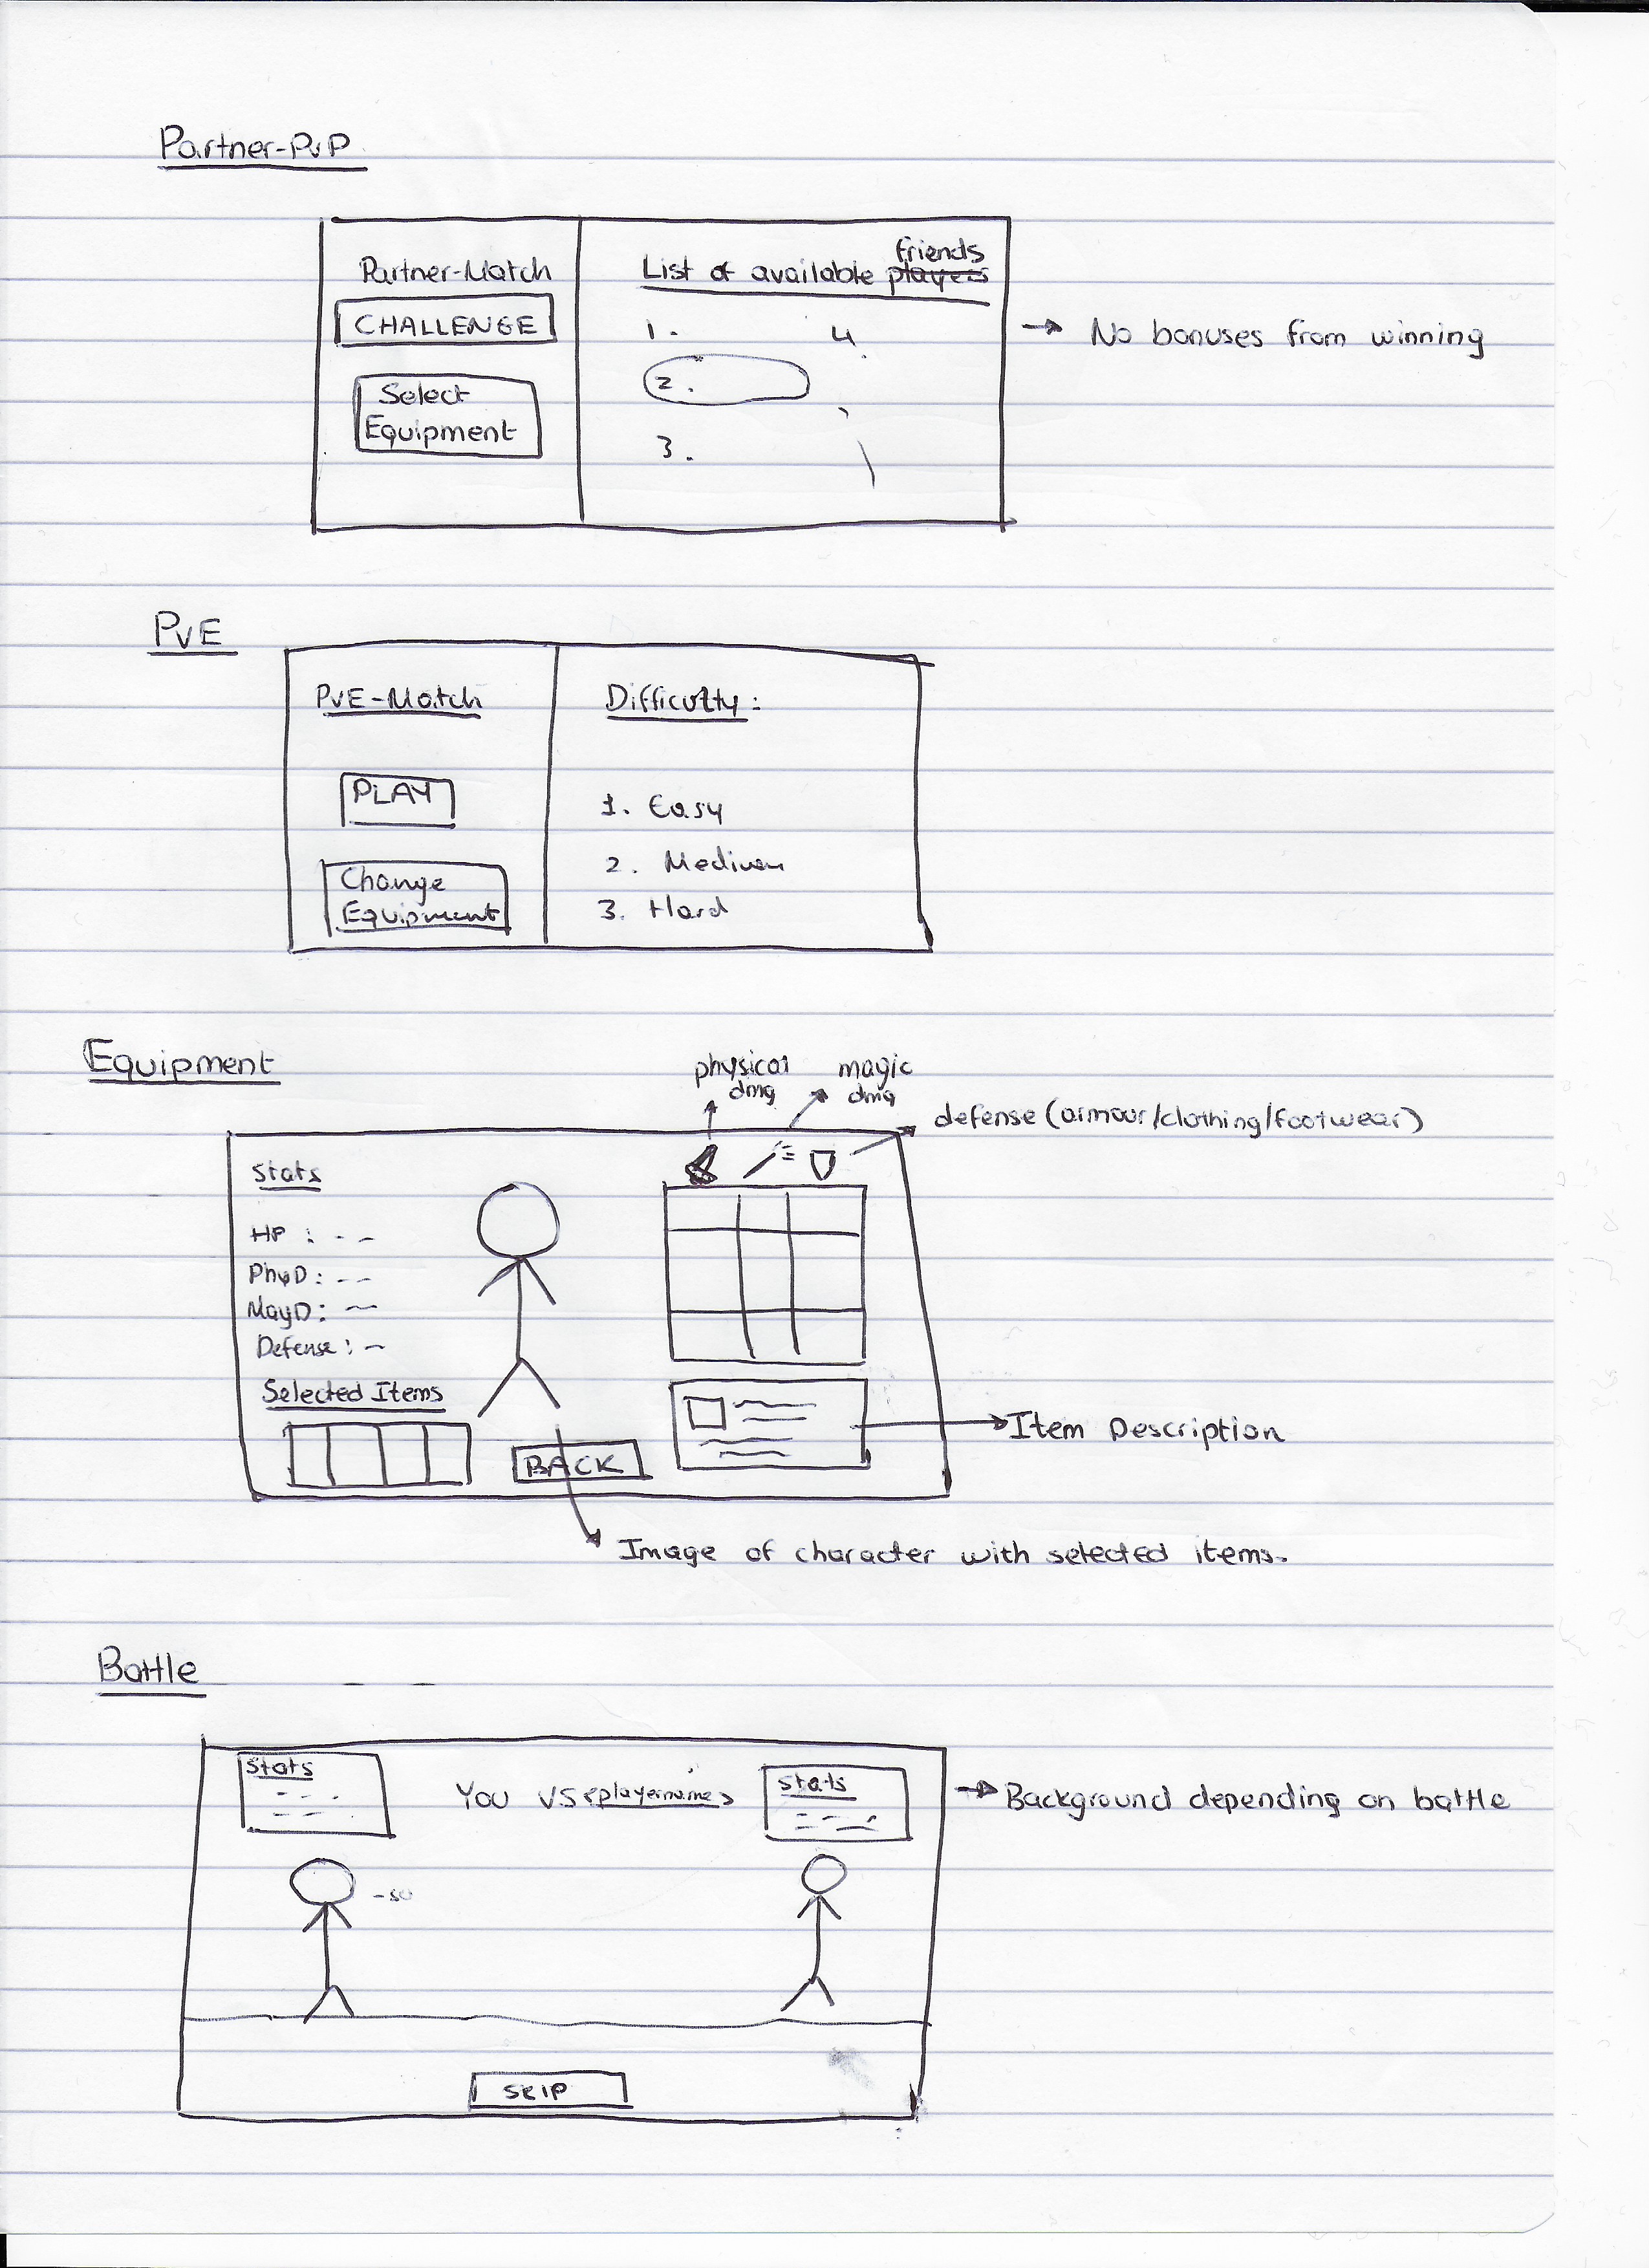 Partner-PvP
Partner-Match
CHALLENGE
Select
Equipment
friends
List of available players
1.
2.
3.
4.
→ No bonuses from winning
PvE
PvE-Match
PLAY
Change
Equipment
Difficulty:
1. Easy
2. Medium
3. Hard
Equipment
physical
dmg
magic
dmg
defense (armour/clothing/footwear)
Stats
HP : --
PhyD: --
MagD: --
Defense: -
Selected Items
BACK
Item Description
Image of character with selected items.
Battle
Stats
You VS <playername>
Stats
→ Background depending on battle
-50
SKIP